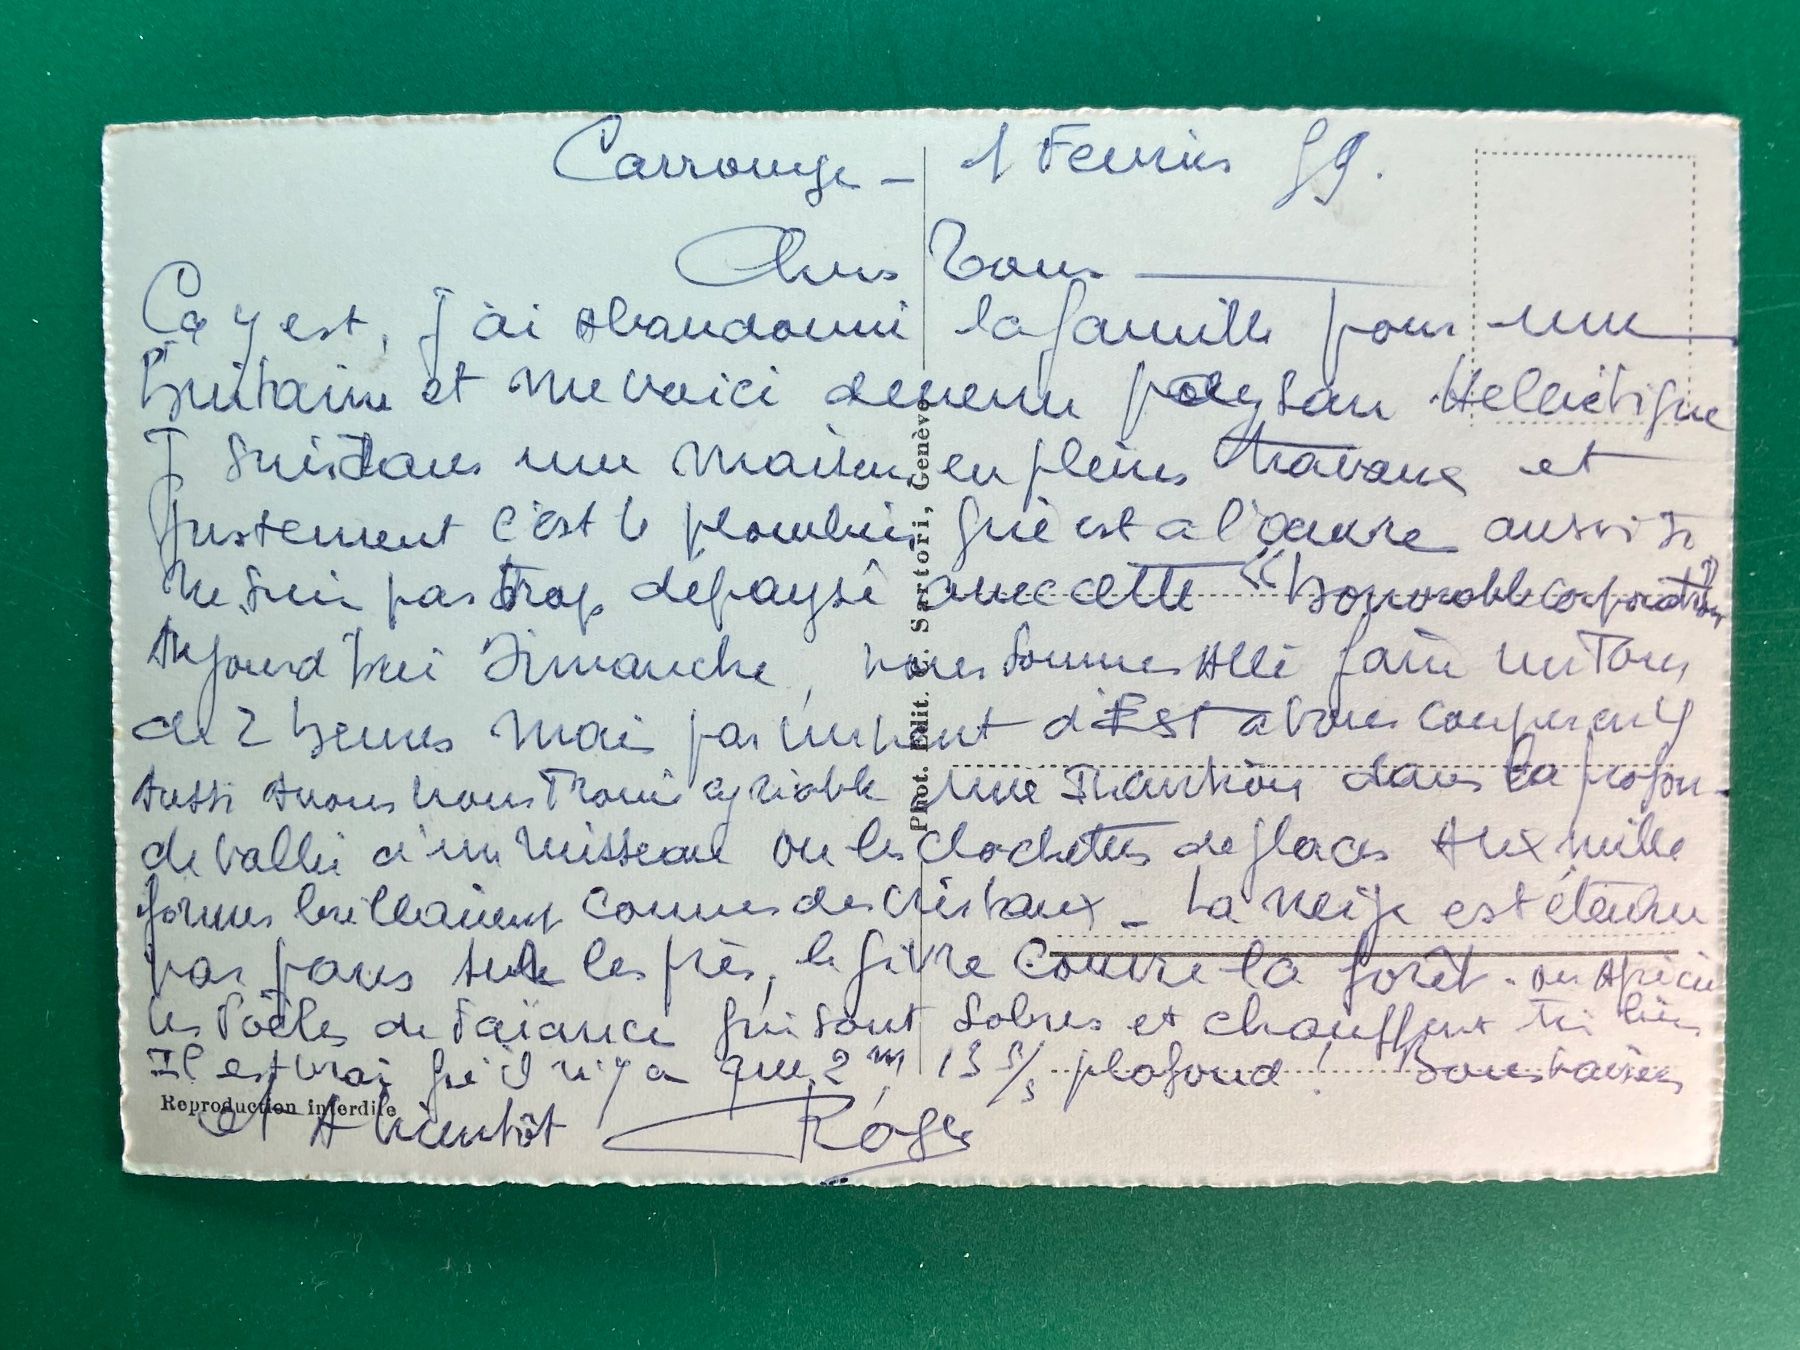 Carrouge - 1 Fevrier 59.
Chers Tous
Ça y est, j'ai abandonné la famille pour une
huitaine et me voici devenu paysan Helvétique
Je suis dans une maison en pleins travaux et
justement c'est le plombier qui est a l'œuvre aussi je
ne suis pas trop dépaysé avec cette "honorable corporation"
Aujourd'hui Dimanche, nous sommes allé faire un tour
de 2 heures mais par un vent d'Est a vous couper en 4
aussi avons nous trouvé agréable une dans la profon-
de vallée d'un ruisseau ou les clochettes de glaces aux mille
formes brillaient comme des cristaux - La neige est étendue
par pans sur les près, le givre couvre la forêt. on aprécie
les Poëles de Faïance qui sont sobres et chauffent très bien
Il est vrai qu'il n'y a que 2 m 13 s/s plafond! Bons baisers
et A bientôt Roger
Phot. Edit. Sartori, Genève
Reproduction interdite